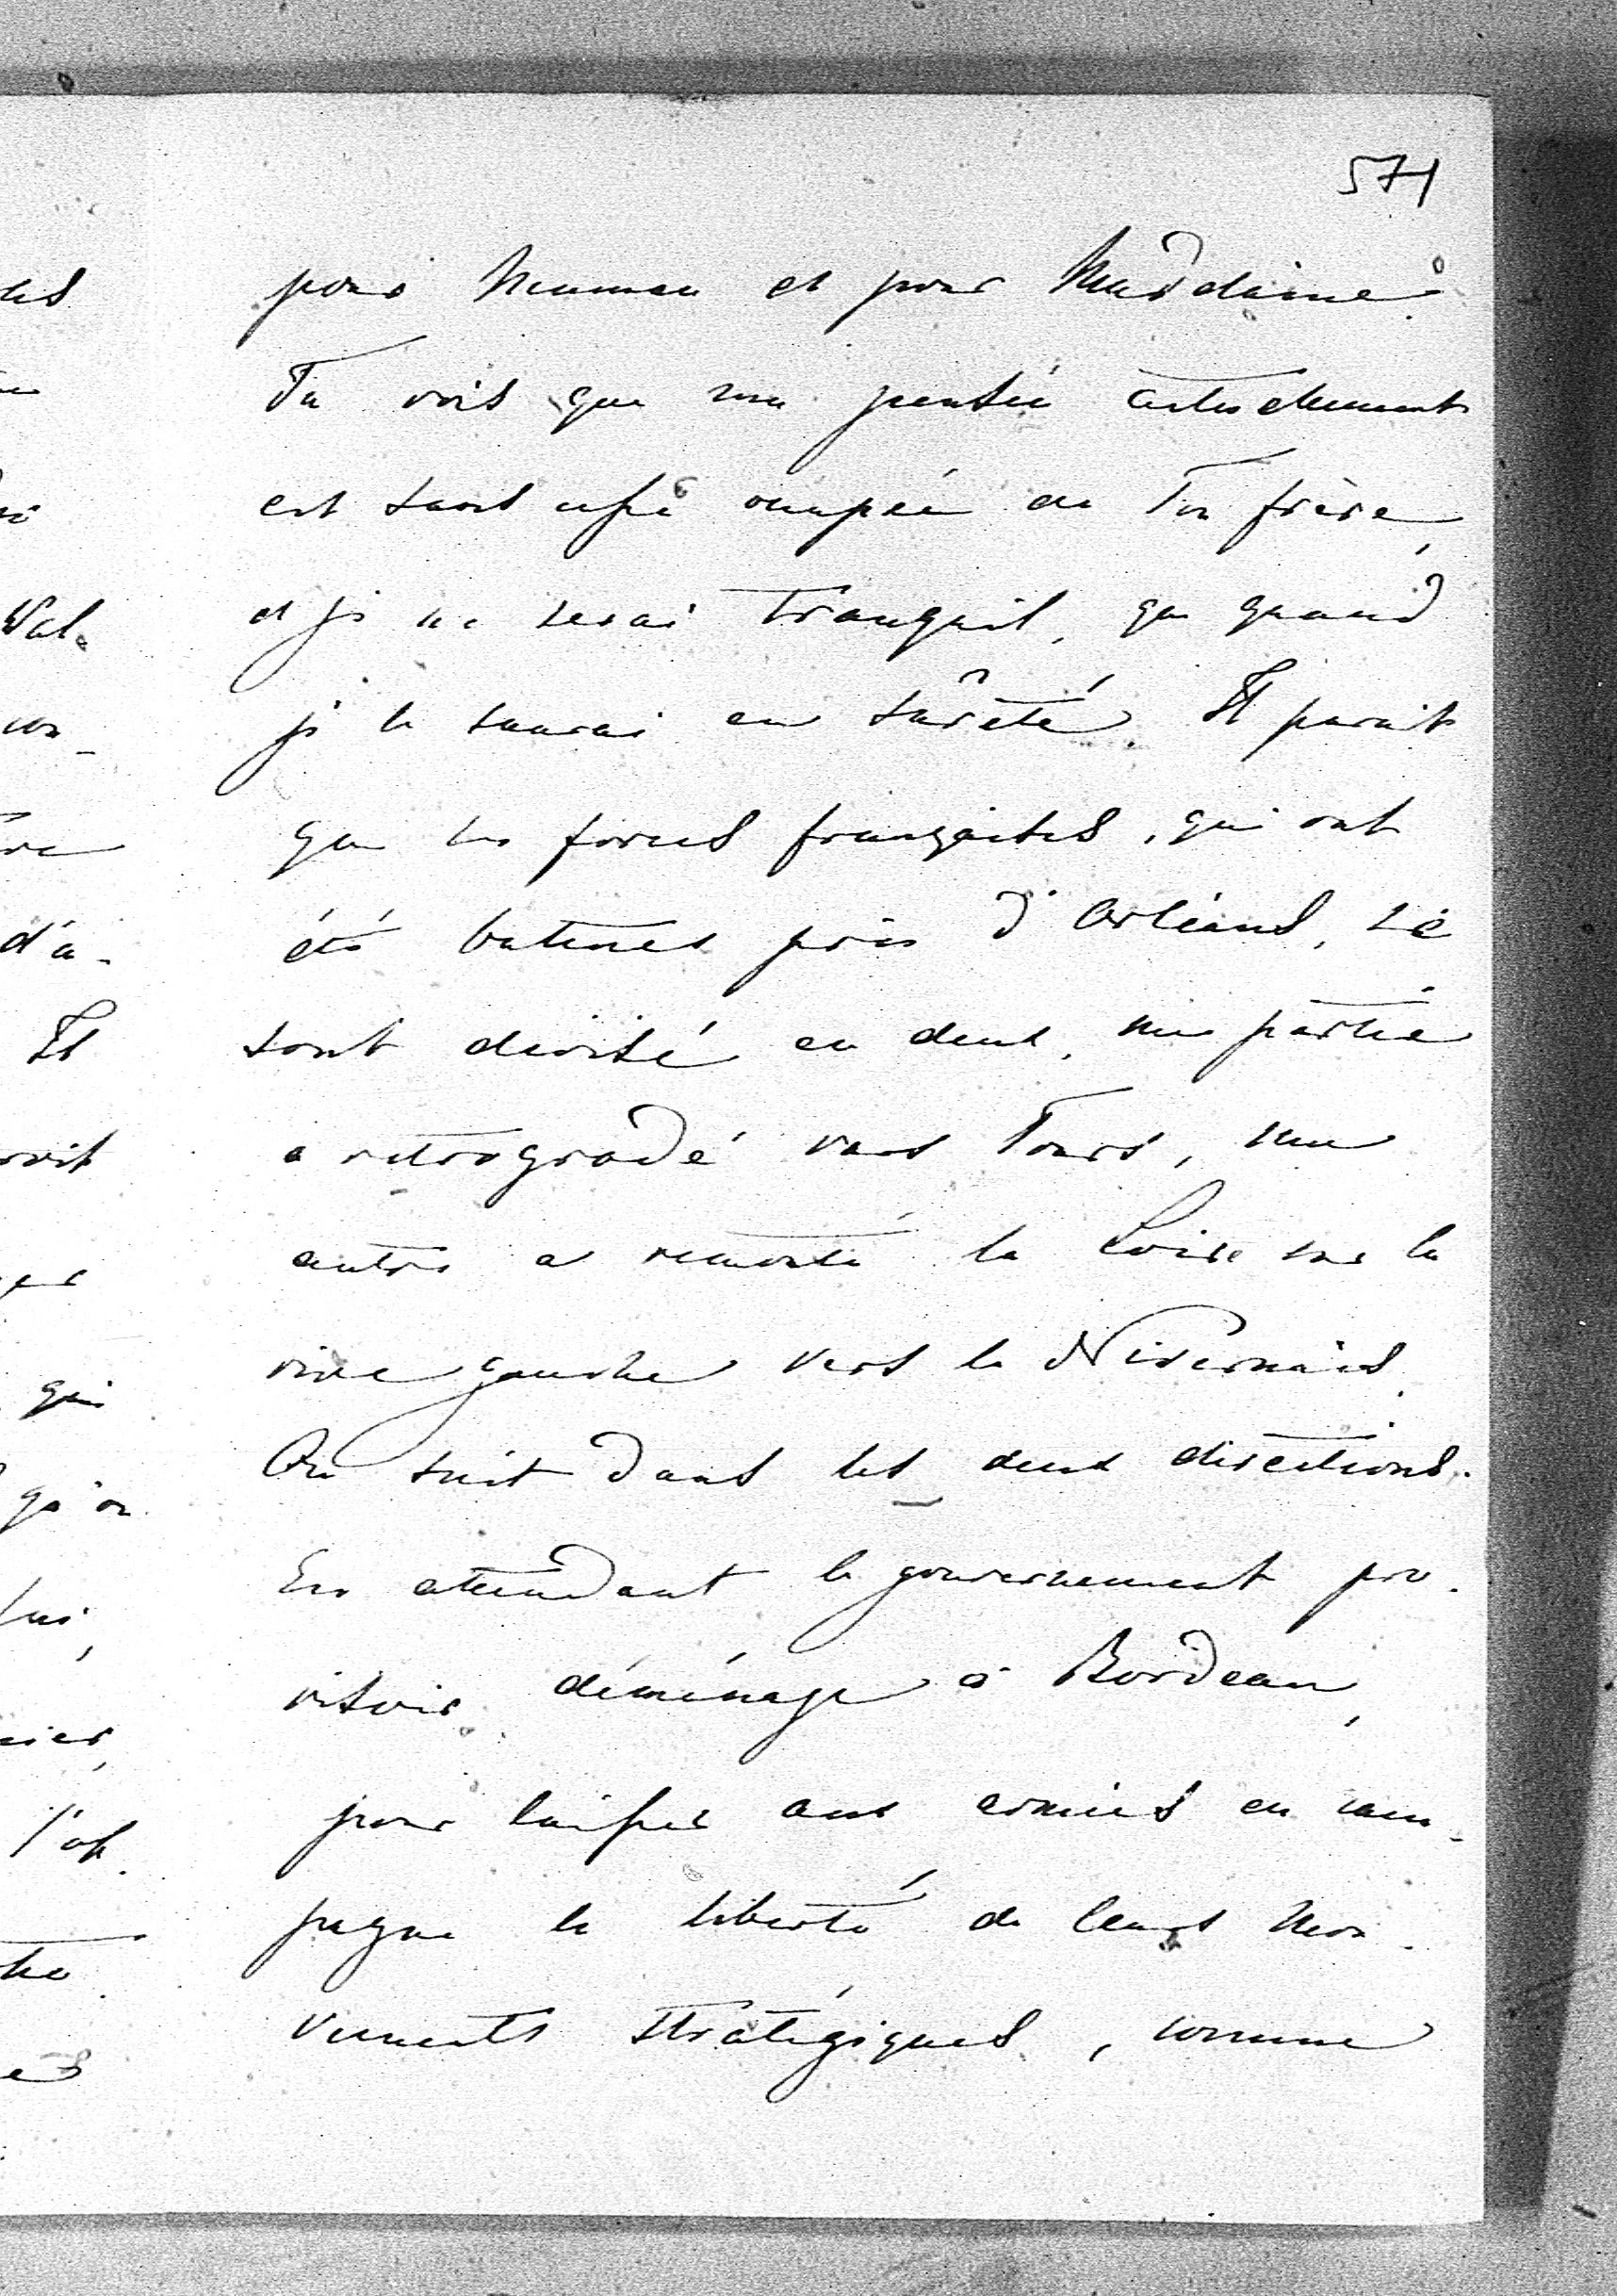 571
pour Maman et pour Madelaine.
Tu vois que ma pensée actuellement
est sans cesse occupée de Ton frère,
et je ne serai tranquil, que quand
je le saurai en sûreté. Il parait
que les forces françaises, qui ont
été battues près d'Orléans, se
sont divisé en deux, une partie
a retrogradé vers Tours, une
autre a remonté la Loire sur la
rive gauche vers le Nivernais.
On suit dans les deux directions.
En attendant le gouvernement pro-
visoir déménage à Bordeau,
pour laisser aux armées en cam-
pagne la liberté de leurs mou-
vements stratégiques, comme